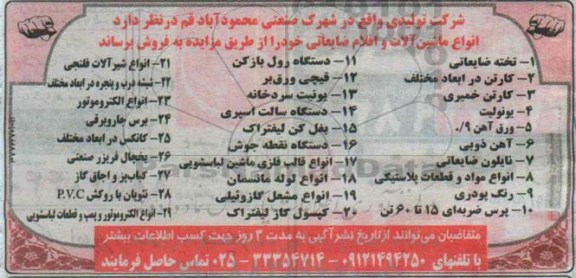 شرکت تولیدی واقع در شهرک صنعتی محمودآباد قم درنظر دارد
انواع ماشین آلات و اقلام ضایعاتی خودرا از طریق مزایده به فروش برساند
۱- تخته ضایعاتی
۲- کارتن در ابعاد مختلف
۳- کارتن خمیری
۴- یونولیت
۵- ورق آهن ۰/۹
۶- آهن ذوبی
۷- نایلون ضایعاتی
۸- انواع مواد و قطعات پلاستیکی
۹- رنگ پودری
۱۰- پرس ضربه‌ای ۱۵ تا ۶۰ تن
۱۱- دستگاه رول بازکن
۱۲- قیچی ورق‌بر
۱۳- یونیت سردخانه
۱۴- دستگاه سالت اسپری
۱۵- بغل کن لیفتراک
۱۶- دستگاه نقطه جوش
۱۷- انواع قالب فلزی ماشین لباسشویی
۱۸- انواع لوله مانسمان
۱۹- انواع مشعل گازوئیلی
۲۰- کپسول گاز لیفتراک
۲۱- انواع شیرآلات فلنجی
۲۲- شیشه درب و پنجره در ابعاد مختلف
۲۳- انواع الکتروموتور
۲۴- برس جاروبرقی
۲۵- کانکس در ابعاد مختلف
۲۶- یخچال فریزر صنعتی
۲۷- کباب‌پز و اجاق گاز
۲۸- نئوپان با روکش P.V.C
۲۹- انواع الکتروموتور و پمپ و قطعات لباسشویی
متقاضیان می‌توانند از تاریخ نشر آگهی به مدت ۳ روز جهت کسب اطلاعات بیشتر
با تلفنهای ۰۹۱۲۱۴۹۴۲۵۰ - ۳۳۳۵۴۷۱۴-۰۲۵ تماس حاصل فرمایند